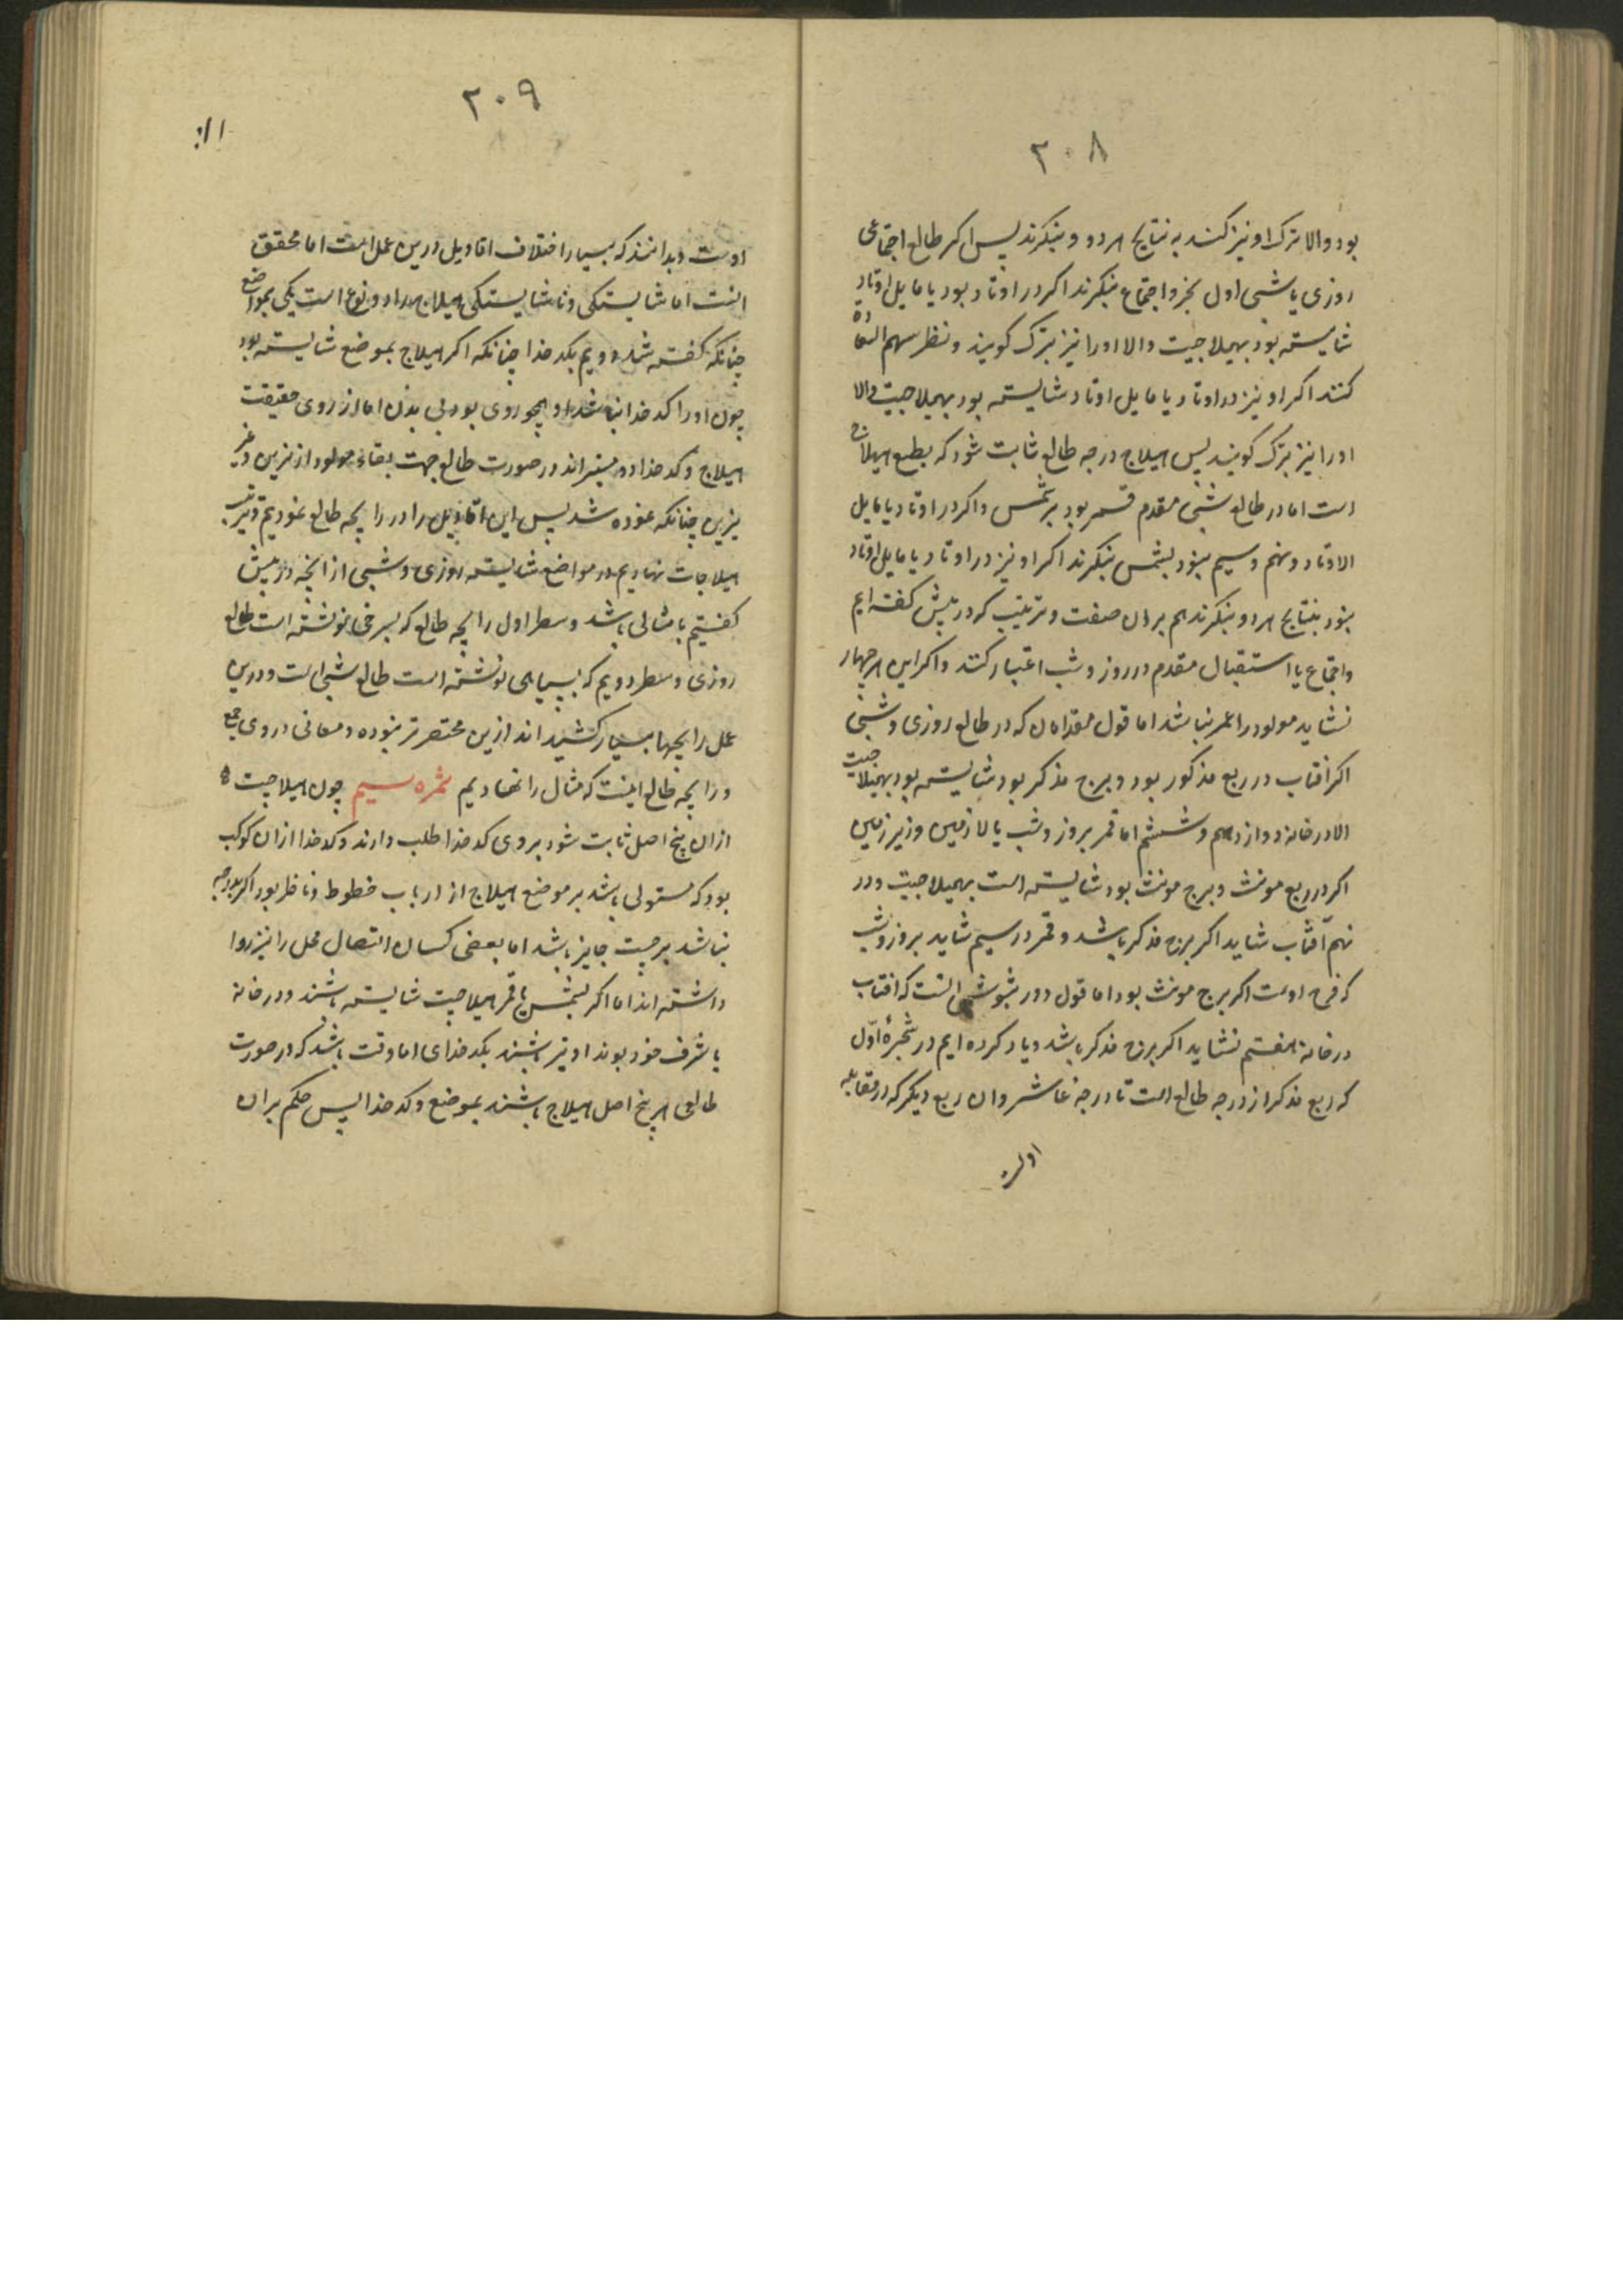 ٢٠٨
بود والا ترک او نیز کنند به نتایج هر دو و بنکرند پس اکر طالع اجتماعی
روزی یا شبی اول بجزو اجتماع بنکرند اکر در اوتاد بود یا مایل اوتاد
شایسته بود بهیلاجیت والا او را نیز بترک کویند و نظر سهم السعاده
کنند اکر او نیز در اوتاد یا مایل اوتاد شایسته بود بهیلاجیت والا
او را نیز بترک کویند پس هیلاج درجه طالع ثابت شود که بطبع هیلاج
است اما در طالع شبی مقدم قمر بود بر شمس واکر در اوتاد یا مایل
الاوتاد و نهم و سیم نبود بشمس بنکرند اکر او نیز در اوتاد یا مایل اوتاد
نبود بنتایج هر دو بنکرند هم بران صفت و ترتیب که در پیش کفته ایم
واجتماع یا استقبال مقدم در روز و شب اعتبار کنند واکر این هر چهار
نشاید مولود را عمر نباشد اما قول مقدمان که در طالع روزی و شبی
اکر افتاب در ربع مذکور بود و برج مذکر بود شایسته بود بهیلاجیت
الا در خانه دوازدهم و ششم اما قمر بروز و شب بالا زمین و زیر زمین
اکر در ربع مونث و برج مونث بود شایسته است بهیلاجیت و در
نهم آفتاب شاید اکر برج مذکر باشد و قمر در سیم شاید بروز و شب
که فرح اوست اکر برج مونث بود اما قول دورثیوش انست که افتاب
در خانه هفتم نشاید اکر برج مذکر باشد و یاد کرده ایم در شجره اوّل
که ربع مذکر از درجه طالع است تا درجه عاشر وان ربع دیکر که در مقابله
٢٠٩
اوست و بدانند که بسیار اختلاف اقاویل درین عمل است اما محقق
انست اما شایستکی و ناشایستکی هیلاج هر دو نوع است یکی بمواضع
چنانکه کفته شد دویم بکدخدا چنانکه اکر هیلاج بموضع شایسته بود
چون او را کدخدا نباشد او همچو روی بود بی بدن اما از روی حقیقت
هیلاج و کدخدا دو مبشراند در صورت طالع جهت بقاء مولود از نیرین و غیر
نیرین چنانکه نموده شد پس این اقاویل را در زایچه طالع نمودیم و ترتیب
هیلاجات نهادیم در مواضع شایسته روزی و شبی از انچه در پیش
کفتیم با مثالی باشد و سطر اول زایچه طالع که بسرخی نوشته است طالع
روزی و سطر دویم که بسیاهی نوشته است طالع شبی است و درین
عمل زایچها بسیار کشیده اند ازین مختصرتر نبوده و معانی در وی جمع
و زایچه طالع اینست که مثال را نهادیم ثمره سیم چون هیلاجیت
ازان پنج اصل ثابت شود بر وی کدخدا طلب دارند و کدخدا ازان کوکب
بود که مستولی باشد بر موضع هیلاج از ارباب خطوط و ناظر بود اکر بدرجه
نباشد برجیت جایز باشد اما بعضی کسان اتصال محل را نیز روا
داشته اند اما اکر شمس یا قمر هیلاجیت شایسته باشند و در خانه
یا شرف خود بوند او نیز باشند بکدخدای اما وقت باشد که در صورت
طالعی هر پنج اصل هیلاج باشند بموضع و کدخدا پس حکم بران